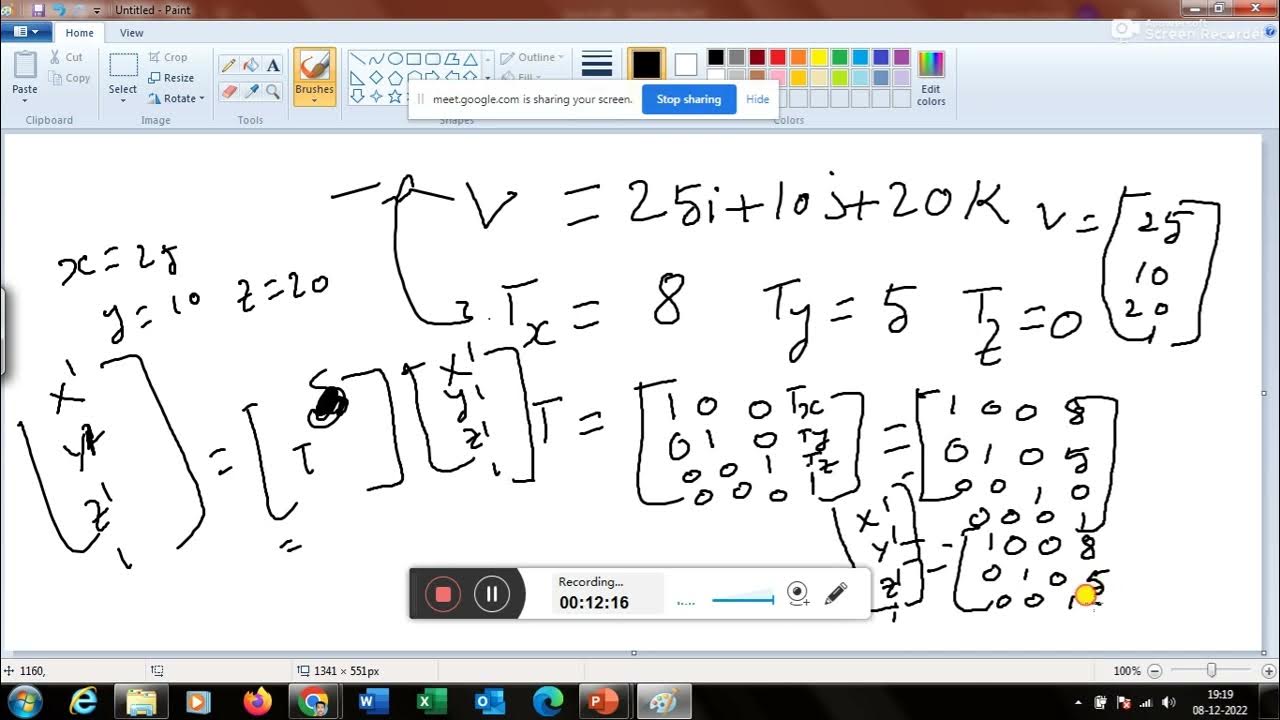 Untitled - Paint
Home View
Paste
Cut
Copy
Clipboard
Select
Crop
Resize
Rotate
Image
Tools
Brushes
Outline
Fill
Shapes
Edit colors
Colors
meet.google.com is sharing your screen. Stop sharing Hide
Screen Recorder
V = 25i+10j+20K
V = 25
10
20
1
x = 25
y = 10 z = 20
Tx = 8 Ty = 5 Tz = 0
x'
y'
z'
1
=
T
x'
y'
z'
1
T =
1 0 0 Tx
0 1 0 Ty
0 0 1 Tz
0 0 0 1
=
1 0 0 8
0 1 0 5
0 0 1 0
0 0 0 1
x'
y'
z'
1
=
1 0 0 8
0 1 0 5
0 0 1
=
Recording...
00:12:16
1160,
1341 × 551px
100%
19:19
08-12-2022